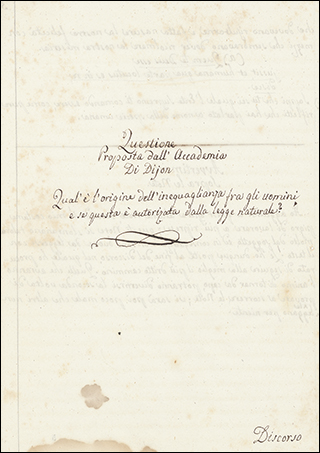 Questione
Proposta dall' Accademia
Di Dijon
Qual'è l'origine dell'ineguaglianza fra gli uomini,
e se questa è autorizata dalla legge naturale?
Discorso